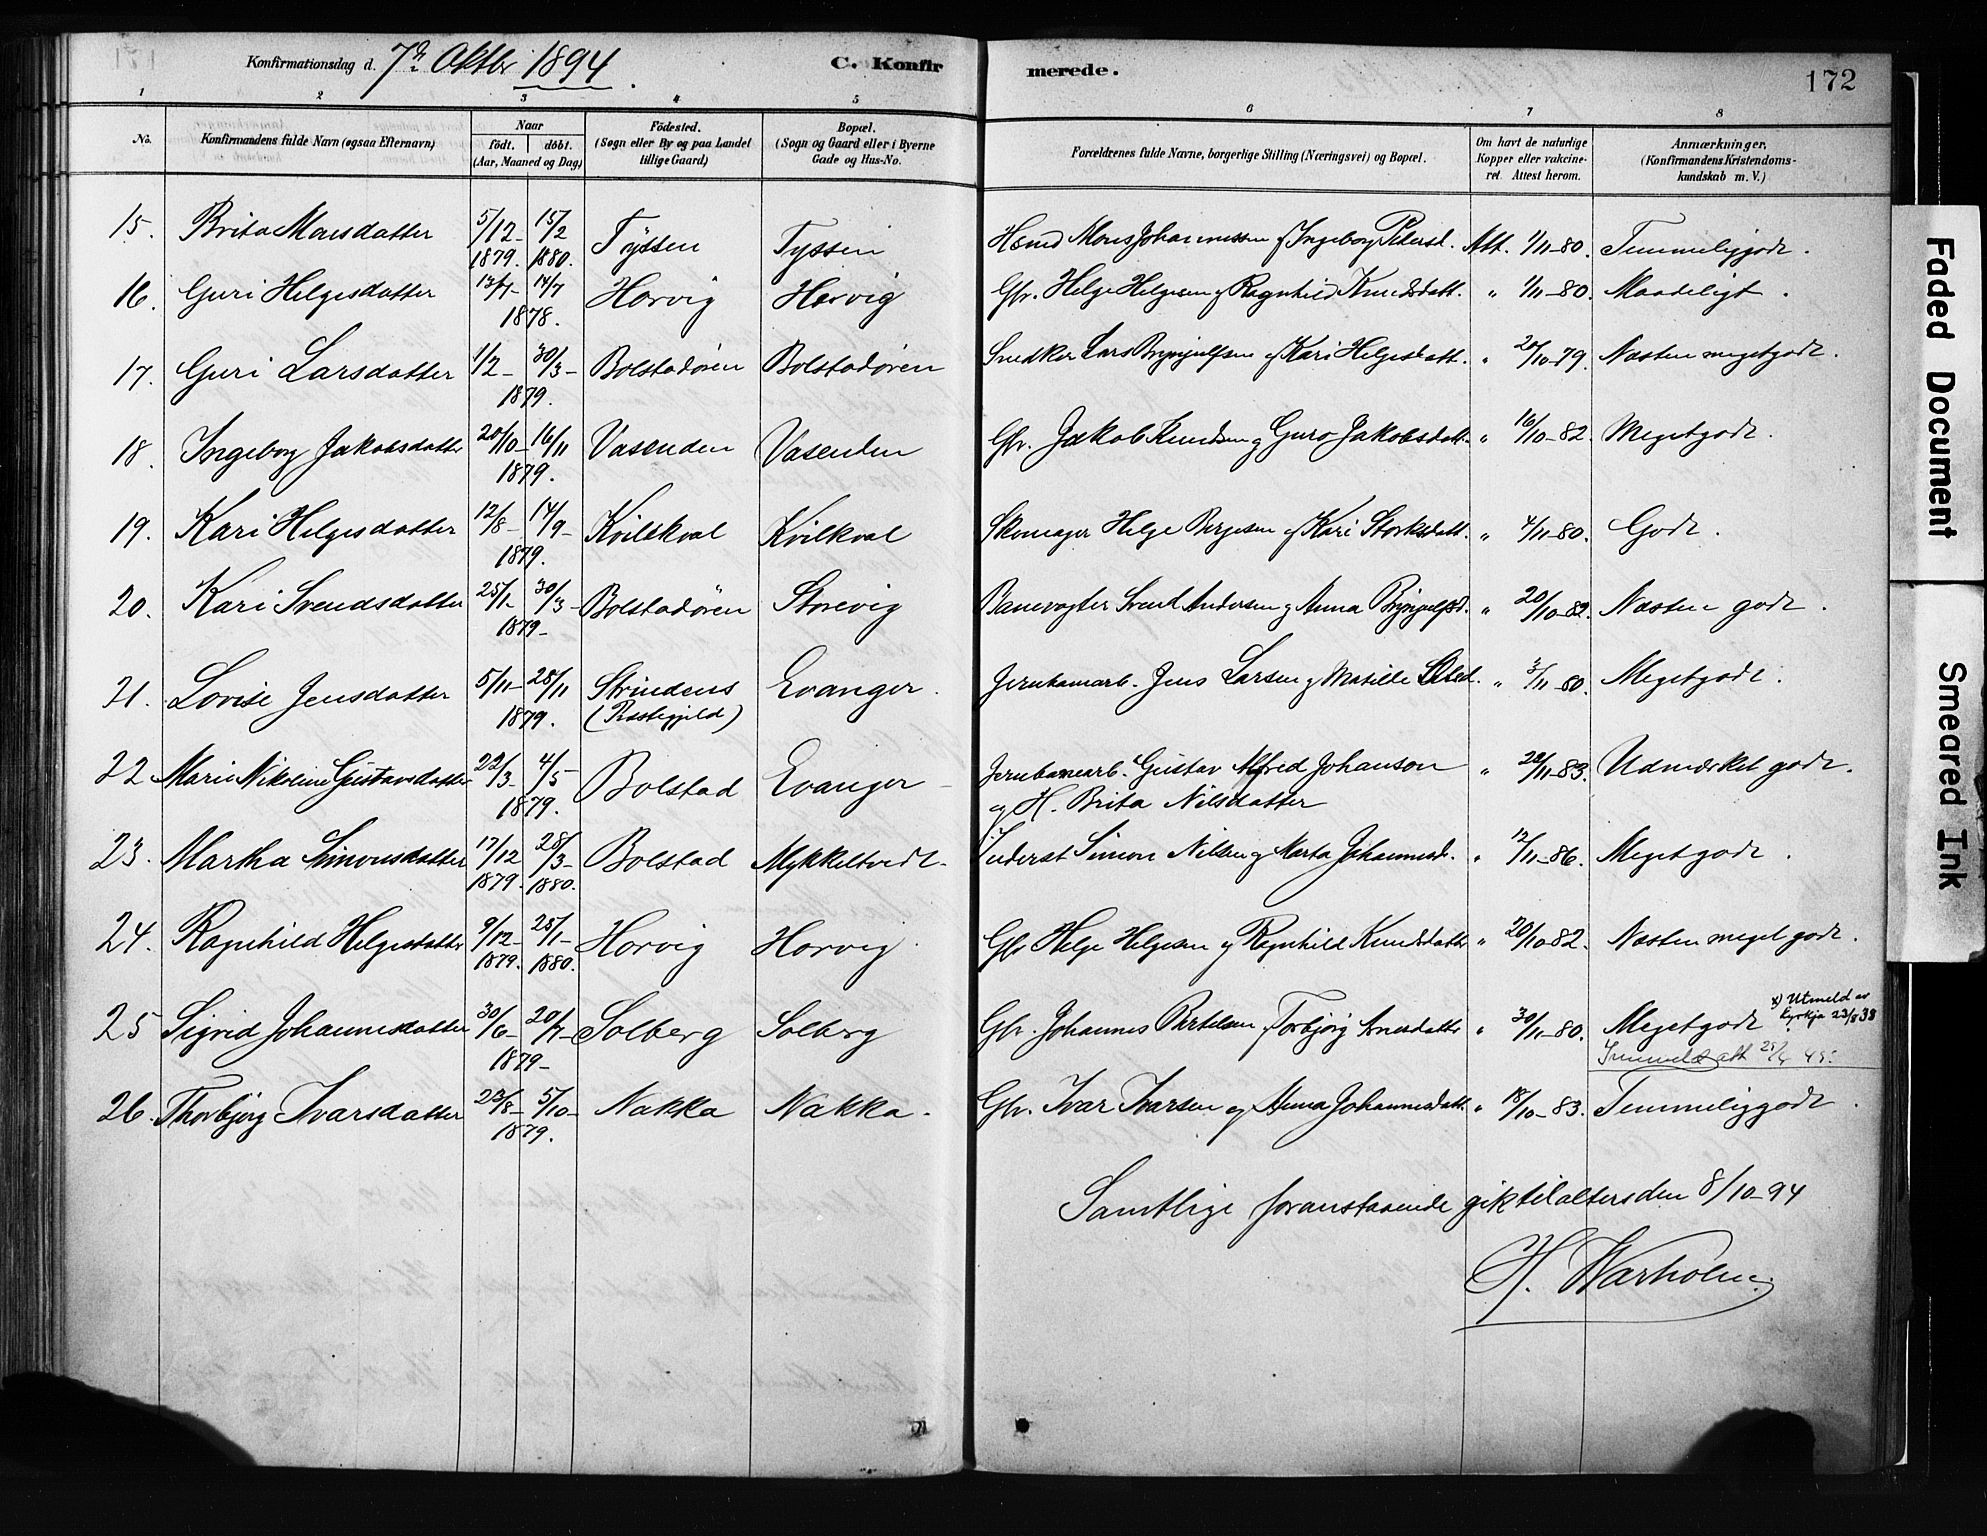 Konfirmationsdag d. 7de Oktbr 1894.
C. Konfirmerede.
172
1 2 3 4 5 6 7 8
No. Konfirmandens fulde Navn (ogsaa Efternavn) Naar født. døbt. (Aar, Maaned og Dag) Fødested. (Sogn eller By og paa Landet tillige Gaard) Bopæl. (Sogn og Gaard eller i Byerne Gade og Hus-No. Forældrenes fulde Navne, borgerlige Stilling (Næringsvei) og Bopæl. Om havt de naturlige Kopper eller vakcineret. Attest herom. Anmærkninger, (Konfirmandens Kristendomskundskab m. V.)
15. Brita Monsdatter 5/12-1879. 15/2 1880. Tyssen Tyssen Hsmd Mons Johannessen & Ingeborg Pedersd. Att. 1/11-80. Temmeliggodt.
16. Guri Helgesdatter 14/7 1878. Horvig Horvig Gbr. Helge Helgesen & Ragnhild Knudsdatt. " 1/11-80. Maadeligt.
17. Guri Larsdatter 1/2- 30/3- 1879. Bolstadøren Bolstadøren Snedker Lars Brynjulfsen & Kari Helgesdatt. " 20/10-79. Næsten megetgodt.
18. Ingeborg Jakobsdatter 20/10- 16/11 1879. Vasenden Vasenden Gbr. Jakob Knudsen og Guro Jakobsdatt. " 16/10-82. Megetgodt.
19. Kari Helgesdatter 12/8- 14/9- 1879. Kvilekval Kvilekval Skomager Helge Børgesen & Kari Storksdatt. " 4/11-80. Godt.
20. Kari Svendsdatter 25/1- 30/3- 1879- Bolstadøren Storevig Banevogter Svend Andersen og Anna Brynjulfsd. " 20/10-82. Næsten godt.
21. Lovise Jensdatter 5/11- 28/11 1879. Strindens (Præstegjeld) Evanger. Jernbanearb. Jens Larsen og Matilde Olsd. " 3/11-80. Megetgodt.
22 Marie Nikoline Gustavsdatter 22/3- 4/5 1879. Bolstad Evanger Jernbanearb. Gustav Alfred Johanson " 22/11-83. Udmærket godt.
og H. Brita Nilsdatter
23. Martha Simonsdatter 17/12 1879. 28/3- 1880. Bolstad Mykkeltvedt- Inderst Simon Nilsen og Marta Johannesd. " 12/11-86. Megetgodt.
24. Ragnhild Helgesdatter 9/12- 1879. 25/1- 1880. Horvig Horvig. Gbr Helge Helgesen og Ragnhild Knudsdatter " 20/10-82. Næsten meget godt.
25 Sigrid Johannesdatter 30/6- 20/7- 1879- Solberg Solberg Gbr. Johannes Bertelsen & Torbjörg Arnesdatter " 30/11-80. Megetgodt.
x) Utmeld av kyrkja 23/8 38
Innmeld att 45.
26. Thorbjørg Ivarsdatter 23/8- 5/10- 1879. Nakka Nakka- Gbr. Ivar Ivarsen og Anna Johannesdatt. " 18/10-83. Temmeliggodt.
Samtlige foranstaaende gik til alters den 8/10-94
H. Warholm.
Faded Document
Smeared Ink